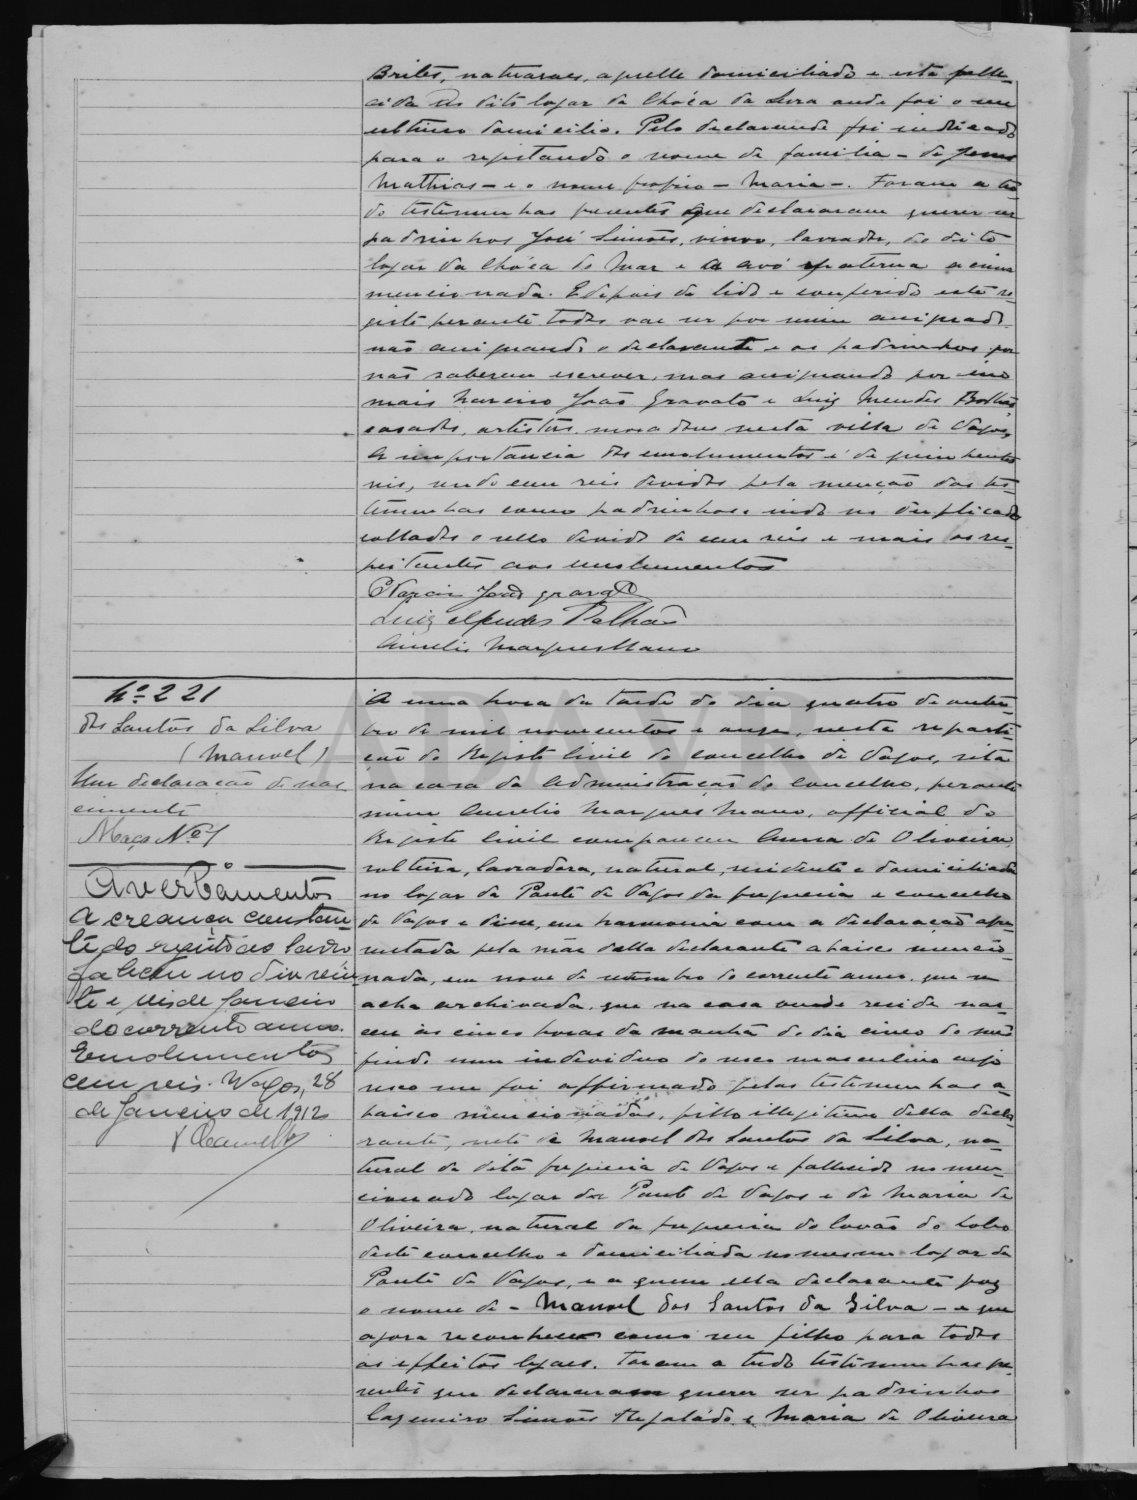 Brites, naturaes, aquelle domiciliado e esta falle-
cida no dito logar da Chóca da Lura onde foi o seu
ultimo domicilio. Pelo declarante foi indicado
para o registando o nome de familia - de Jesus
Mathias - e o nome proprio - Maria -. Foram a tu-
do testemunhas presentes que declararam querer ser
padrinhos José Simões, viuvo, lavrador, do dito
logar da Chóca do Mar e a avó paterna acima
mencionada. E depois de lido e conferido este re-
gisto perante todos vae ser por mim assignado
não assignando o declarante e os padrinhos por
não saberem escrever, mas assignando por
mais Narciso João Gravato e Luiz Mendes Bolhão
casados, artistas, moradores nesta villa de Vagos,
A importancia dos emolumentos é de quinhentos
reis, sendo cem reis devidos pela menção das tes-
temunhas como padrinhos indo no duplicado
collado o sello devido de cem reis e mais os res-
peitantes aos emolumentos
Narciso João Gravato
Luiz Mendes Bolhão
Aurelio Marques Mano
Nº 221
dos Santos da Silva
(Manoel)
Uma declaração de nas-
cimento
Maço Nº 1
Averbamentos
A creança constan-
te do registo ao lado
faleceu no dia vin-
te e seis de Janeiro
do corrente anno.
Emolumentos
cem reis. Vagos, 28
de Janeiro de 1912
A uma hora da tarde do dia quatro de outu-
bro de mil novecentos e onze, nesta reparti-
ção do Registo Civil do concelho de Vagos, sita
na casa da Administração do Concelho, perante
mim Aurelio Marques Mano, official do
Registo Civil compareceu Anna de Oliveira,
solteira, lavradora, natural, residente e domiciliada
no logar da Ponte de Vagos da freguesia e concelho
de Vagos e disse, em harmonia com a declaração apre-
sentada pela mãe della declarante abaixo mencio-
nada, em nove de setembro do corrente anno, que se
acha archivada, que na casa onde reside nas-
ceu ás cinco horas da manhã do dia cinco do mês
findo um individuo do sexo masculino cujo
sexo me foi affirmado pelas testemunhas a-
baixo mencionadas, filho illegitimo della decla-
rante, neto de Manoel dos Santos da Silva, na-
tural da dita freguesia de Vagos e fallecido no men-
cionado logar da Ponte de Vagos e de Maria de
Oliveira, natural da freguesia do Covão do Lobo
deste concelho e domiciliada no mesmo logar da
Ponte de Vagos, e a quem ella declarante poz
o nome de - Manoel dos Santos da Silva - e que
agora reconhece como seu filho para todos
os effeitos legaes. Foram a tudo testemunhas pre-
sentes que declararam querer ser padrinhos
Casemiro Simões e Maria de Oliveira